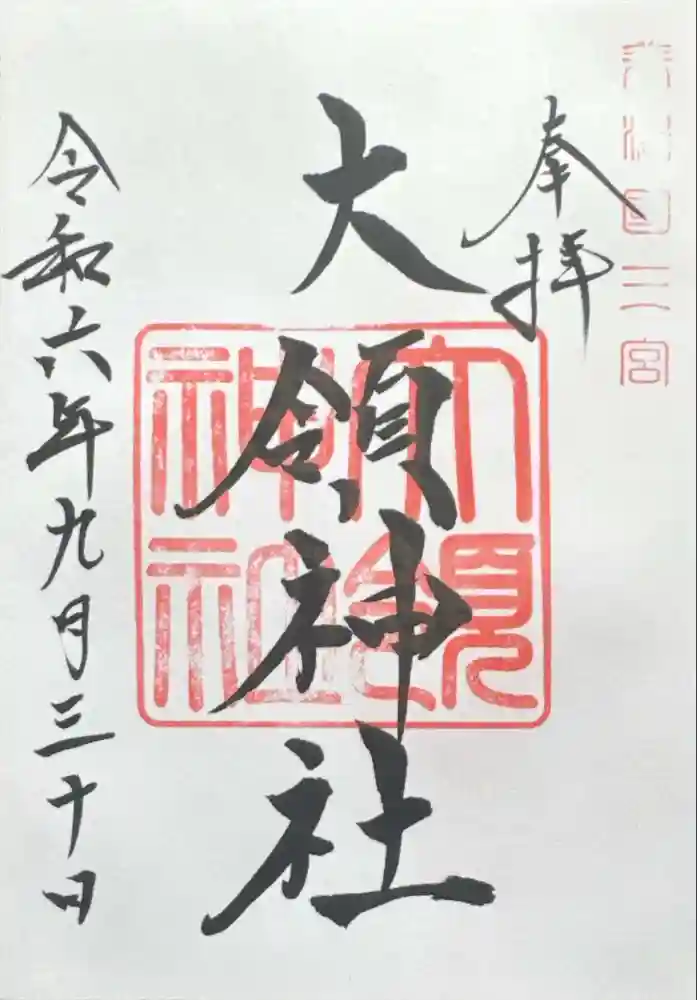 美濃國三宮
奉拝
大領神社
大領
神社
令和六年九月三十日